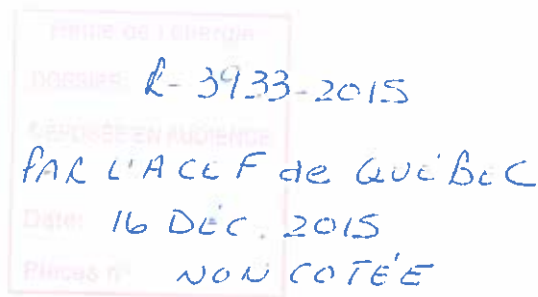 Régie de l'énergie
DOSSIER: R-3933-2015
DÉPOSÉE EN AUDIENCE
PAR L'ACEF de QUÉBEC
Date: 16 DÉC. 2015
Pièces n° NON COTÉE